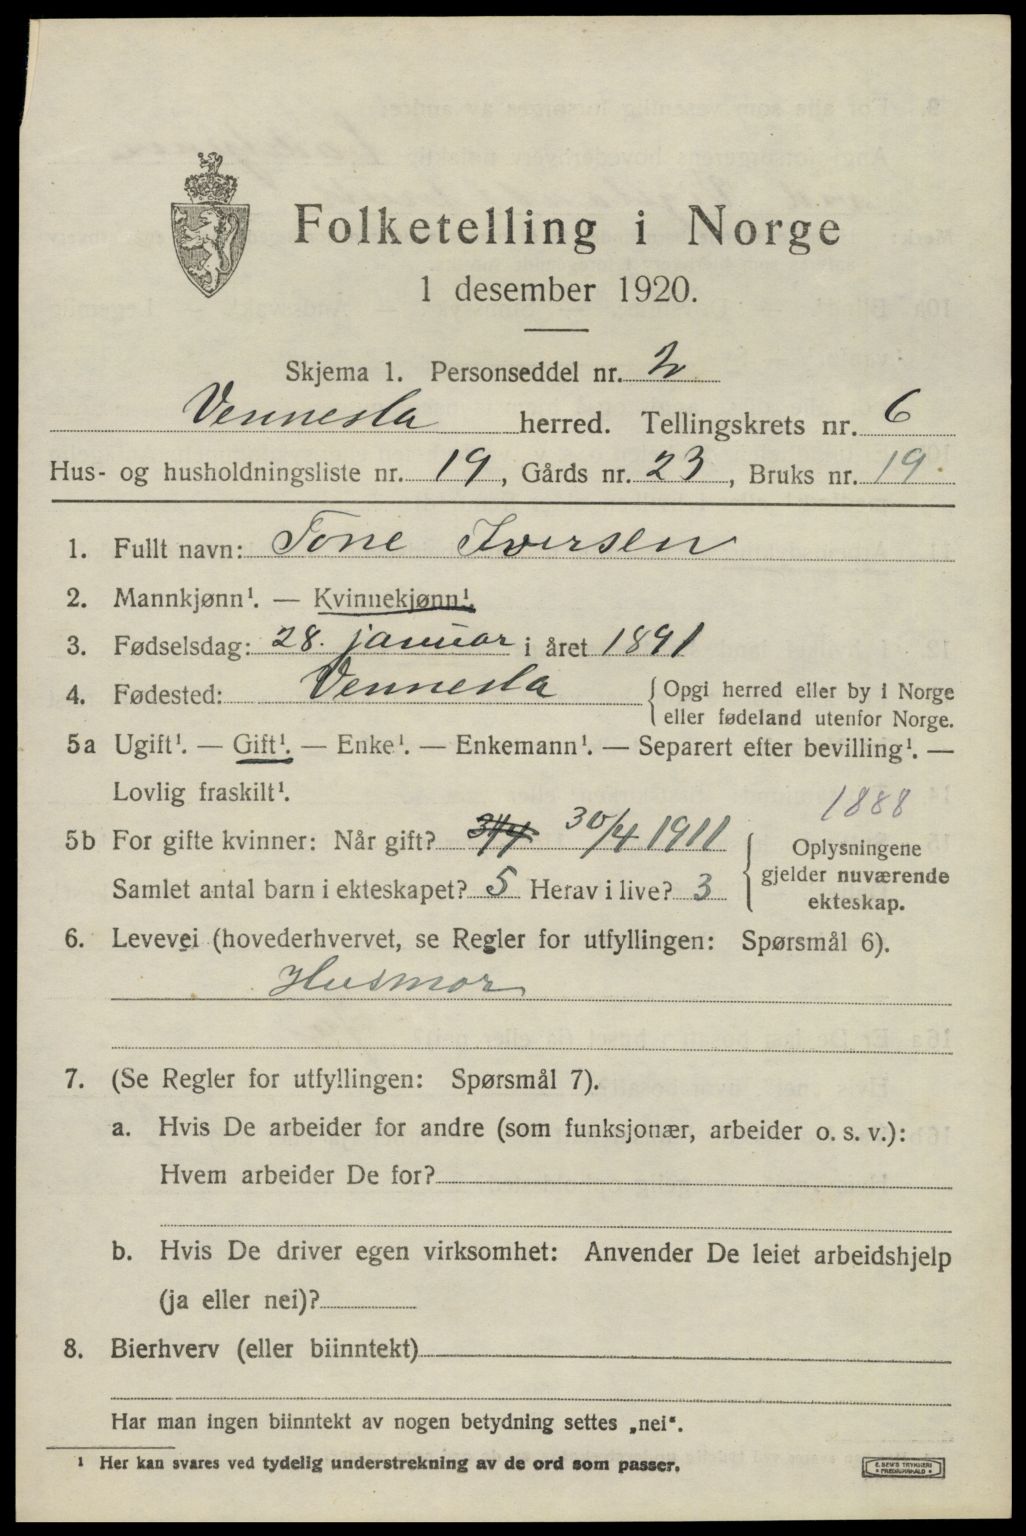 Folketelling i Norge
1 desember 1920.
Skjema 1. Personseddel nr. 2
Vennesla herred. Tellingskrets nr. 6
Hus- og husholdningsliste nr. 19, Gårds nr. 23, Bruks nr. 19.
1. Fullt navn: Tone Iversen
2. Mannkjønn¹. — Kvinnekjønn¹.
3. Fødselsdag: 28. januar i året 1891
4. Fødested: Vennesla { Opgi herred eller by i Norge
eller fødeland utenfor Norge.
5a Ugift¹. — Gift¹. — Enke¹. — Enkemann¹. — Separert efter bevilling¹. —
Lovlig fraskilt¹.
1888
5b For gifte kvinner: Når gift? 30/4 1911
Samlet antal barn i ekteskapet? 5 Herav i live? 3
{ Oplysningene
gjelder nuværende
ekteskap.
6. Levevei (hovederhvervet, se Regler for utfyllingen: Spørsmål 6).
Husmor
7. (Se Regler for utfyllingen: Spørsmål 7).
a. Hvis De arbeider for andre (som funksjonær, arbeider o. s. v.):
Hvem arbeider De for?
b. Hvis De driver egen virksomhet: Anvender De leiet arbeidshjelp
(ja eller nei)?
8. Bierhverv (eller biinntekt)
Har man ingen biinntekt av nogen betydning settes „nei“.
¹ Her kan svares ved tydelig understrekning av de ord som passer.
E. SEM'S TRYKKERI
FREDRIKSHALD